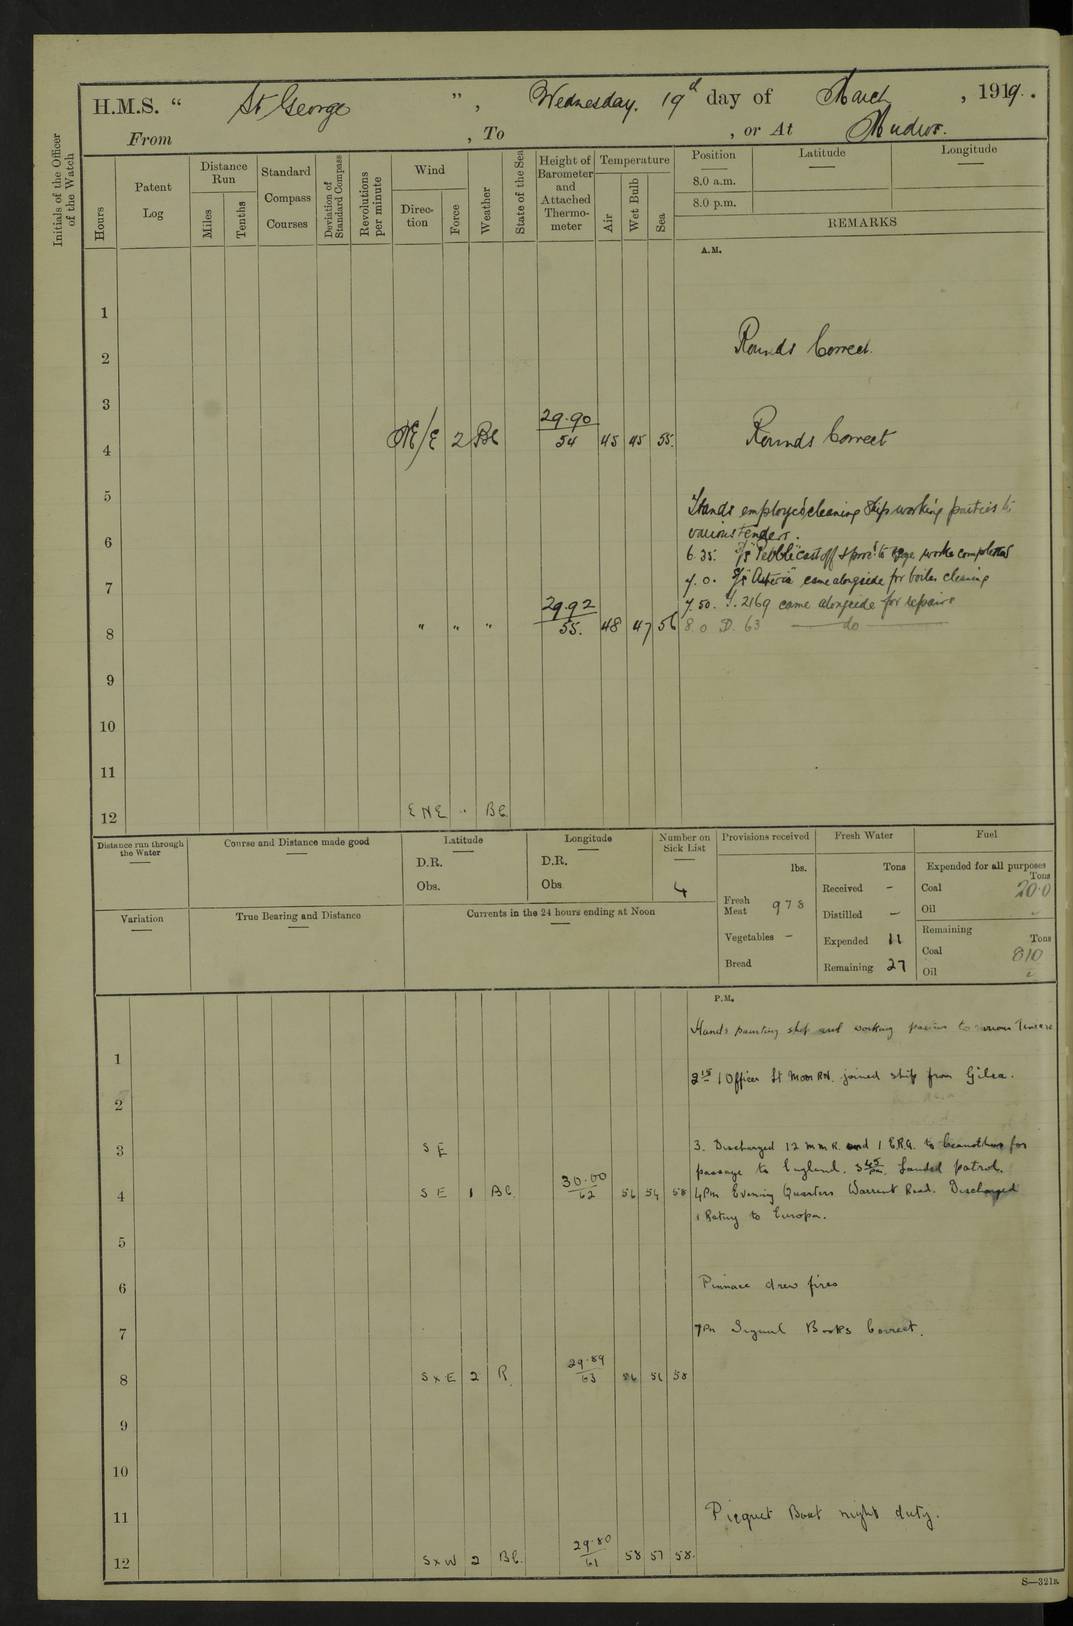 H.M.S. “ St George ” , Wednesday. 19 day of March , 1919 .
From , To , or At Mudros.
Initials of the Officer of the Watch
Hours
Patent Log
Distance Run
Miles
Tenths
Standard Compass Courses
Deviation of Standard Compass
Revolutions per minute
Wind
Direction
Force
Weather
State of the Sea
Height of Barometer and Attached Thermometer
Temperature
Air
Wet Bulb
Sea
Position
8.0 a.m.
8.0 p.m.
Latitude
Longitude
REMARKS
A.M.
1
2 Rounds Correct.
3
4 NE/E 2 BC 29.90 54 45 45 55. Rounds Correct
5 Hands employed cleaning ship working parties to
various Tenders.
6 6.35. "Pebble" cast off & proc'd to works completed
7 7.0. "Asteria" came alongside for boiler cleaning
7.50. T. 2169 came alongside for repairs
8 " " " 29.92 55. 48 47 56 8.0 D. 63 — do —
9
10
11
12 ENE " BC
Distance run through the Water
Course and Distance made good
Latitude
D.R.
Obs.
Longitude
D.R.
Obs
Number on Sick List
4
Provisions received
lbs.
Fresh Meat 978
Vegetables –
Bread
Fresh Water
Tons
Received –
Distilled –
Expended 11
Remaining 27
Fuel
Expended for all purposes
Tons
Coal 20.0
Oil
Remaining
Tons
Coal 810
Oil
Variation
True Bearing and Distance
Currents in the 24 hours ending at Noon
P.M.
Hands painting ship and working parties to various Tenders
1
2 15 1 Officer Lt Moor RN. joined ship from Gilia.
2
3 SE 3. Discharged 12 M M R. and 1 E.R.A. to for
passage to England. 3 45 pm. Landed patrol.
4 SE 1 BC. 30.00 62 56 54 58 4 PM Evening Quarters Warrant Read. Discharged
1 Rating to Europa.
5
6 Pinnace drew fires
7 7 PM Signal Books Correct.
8 SxE 2 R. 29.89 63 56 56 58
9
10
11 Picquet Boat night duty.
12 SxW 2 BC. 29.80 61 58 57 58.
S—321a.